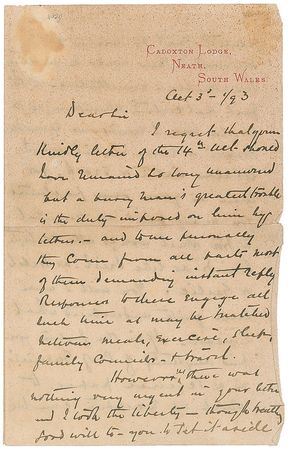 CADOXTON LODGE,
NEATH,
SOUTH WALES.
Oct 3d /93
Dear Sir
I regret that your
Kindly letter of the 14th should
have remained so long unanswered
but a busy man's greatest trouble
is the duty imposed on him by
letters. – and to me personally
they come from all parts most
of them demanding instant reply
Responses to these engage all
such time as may be snatched
between meals, exercise, sleep,
family Councils – & travel.
However, there was
nothing very urgent in your letter
and I took the liberty – though
good will to – you to set it aside